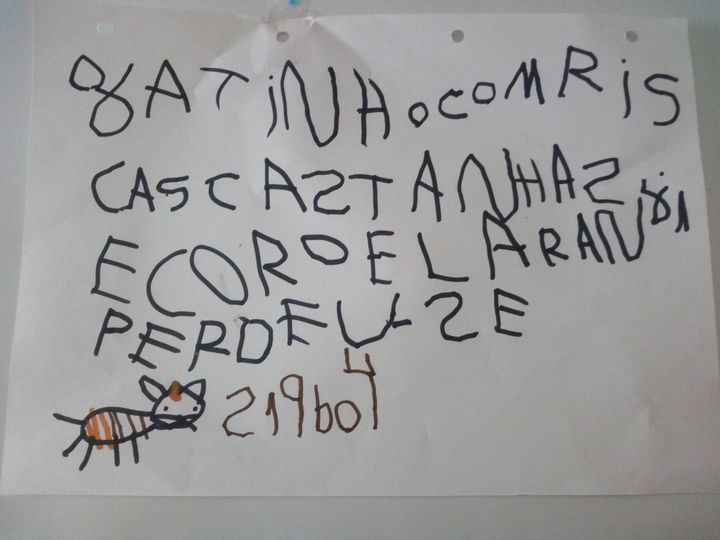 GATINHO COM RIS
CAS CASTANHAS
E COR DE LARANGI
PERDEU-SE
219604